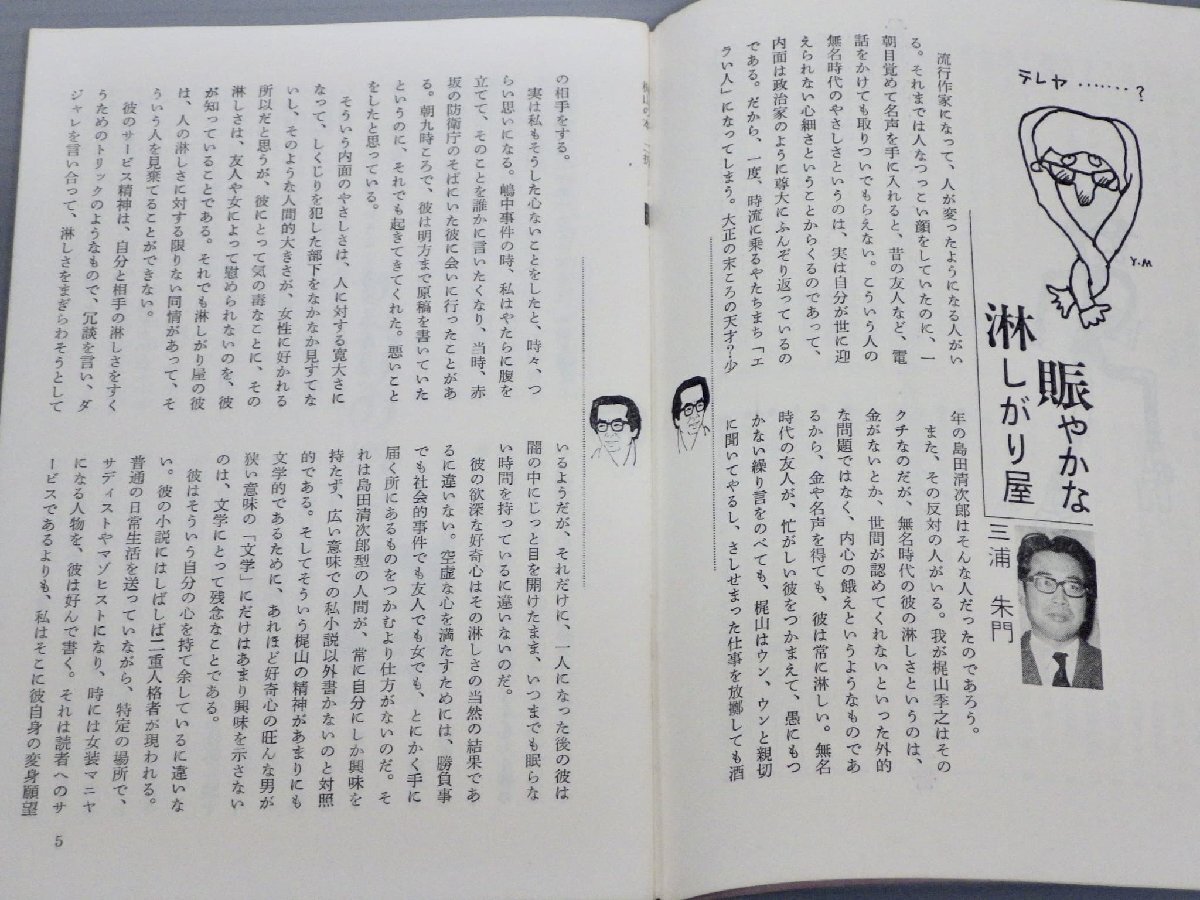 テレヤ………？
Y.M
賑やかな
淋しがり屋
三浦 朱門
流行作家になって、人が変ったようになる人がい
る。それまでは人なつっこい顔をしていたのに、一
朝目覚めて名声を手に入れると、昔の友人など、電
話をかけても取りついでもらえない。こういう人の
無名時代のやさしさというのは、実は自分が世に迎
えられない心細さということからくるのであって、
内面は政治家のように尊大にふんぞり返っているの
である。だから、一度、時流に乗るやたちまち「エ
ラい人」になってしまう。大正の末ころの天才？少
年の島田清次郎はそんな人だったのであろう。
また、その反対の人がいる。我が梶山季之はその
クチなのだが、無名時代の彼の淋しさというのは、
金がないとか、世間が認めてくれないといった外的
な問題ではなく、内心の餓えというようなものであ
るから、金や名声を得ても、彼は常に淋しい。無名
時代の友人が、忙がしい彼をつかまえて、愚にもつ
かない繰り言をのべても、梶山はウン、ウンと親切
に聞いてやるし、さしせまった仕事を放擲しても酒
の相手をする。
実は私もそうした心ないことをしたと、時々、つ
らい思いになる。嶋中事件の時、私はやたらに腹を
立てて、そのことを誰かに言いたくなり、当時、赤
坂の防衛庁のそばにいた彼に会いに行ったことがあ
る。朝九時ころで、彼は明方まで原稿を書いていた
というのに、それでも起きてきてくれた。悪いこと
をしたと思っている。
そういう内面のやさしさは、人に対する寛大さに
なって、しくじりを犯した部下をなかなか見すてな
いし、そのような人間的大きさが、女性に好かれる
所以だと思うが、彼にとって気の毒なことに、その
淋しさは、友人や女によって慰められないのを、彼
が知っていることである。それでも淋しがり屋の彼
は、人の淋しさに対する限りない同情があって、そ
ういう人を見棄てることができない。
彼のサービス精神は、自分と相手の淋しさをすく
うためのトリックのようなもので、冗談を言い、ダ
ジャレを言い合って、淋しさをまぎらわそうとして
いるようだが、それだけに、一人になった後の彼は
闇の中にじっと目を開けたまま、いつまでも眠らな
い時間を持っているに違いないのだ。
彼の欲深な好奇心はその淋しさの当然の結果であ
るに違いない。空虚な心を満たすためには、勝負事
でも社会的事件でも友人でも女でも、とにかく手に
届く所にあるものをつかむより仕方がないのだ。そ
れは島田清次郎型の人間が、常に自分にしか興味を
持たず、広い意味での私小説以外書かないのと対照
的である。そしてそういう梶山の精神があまりにも
文学的であるために、あれほど好奇心の旺んな男が
狭い意味の「文学」にだけはあまり興味を示さない
のは、文学にとって残念なことである。
彼はそういう自分の心を持て余しているに違いな
い。彼の小説にはしばしば二重人格者が現われる。
普通の日常生活を送っていながら、特定の場所で、
サディストやマゾヒストになり、時には女装マニヤ
になる人物を、彼は好んで書く。それは読者へのサ
ービスであるよりも、私はそこに彼自身の変身願望
5